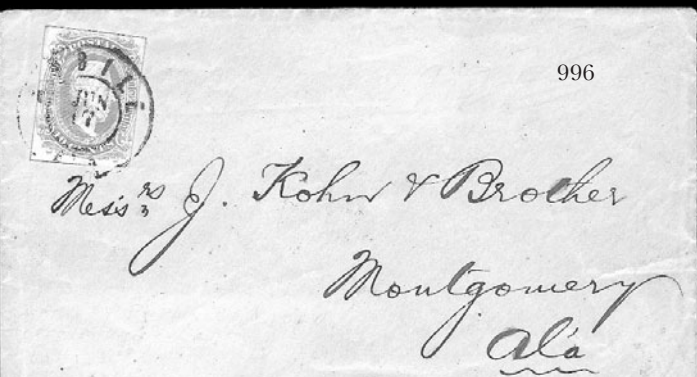 BILE
JUN
17
996
Mess^rs J. Kohn & Brother
Montgomery
Ala